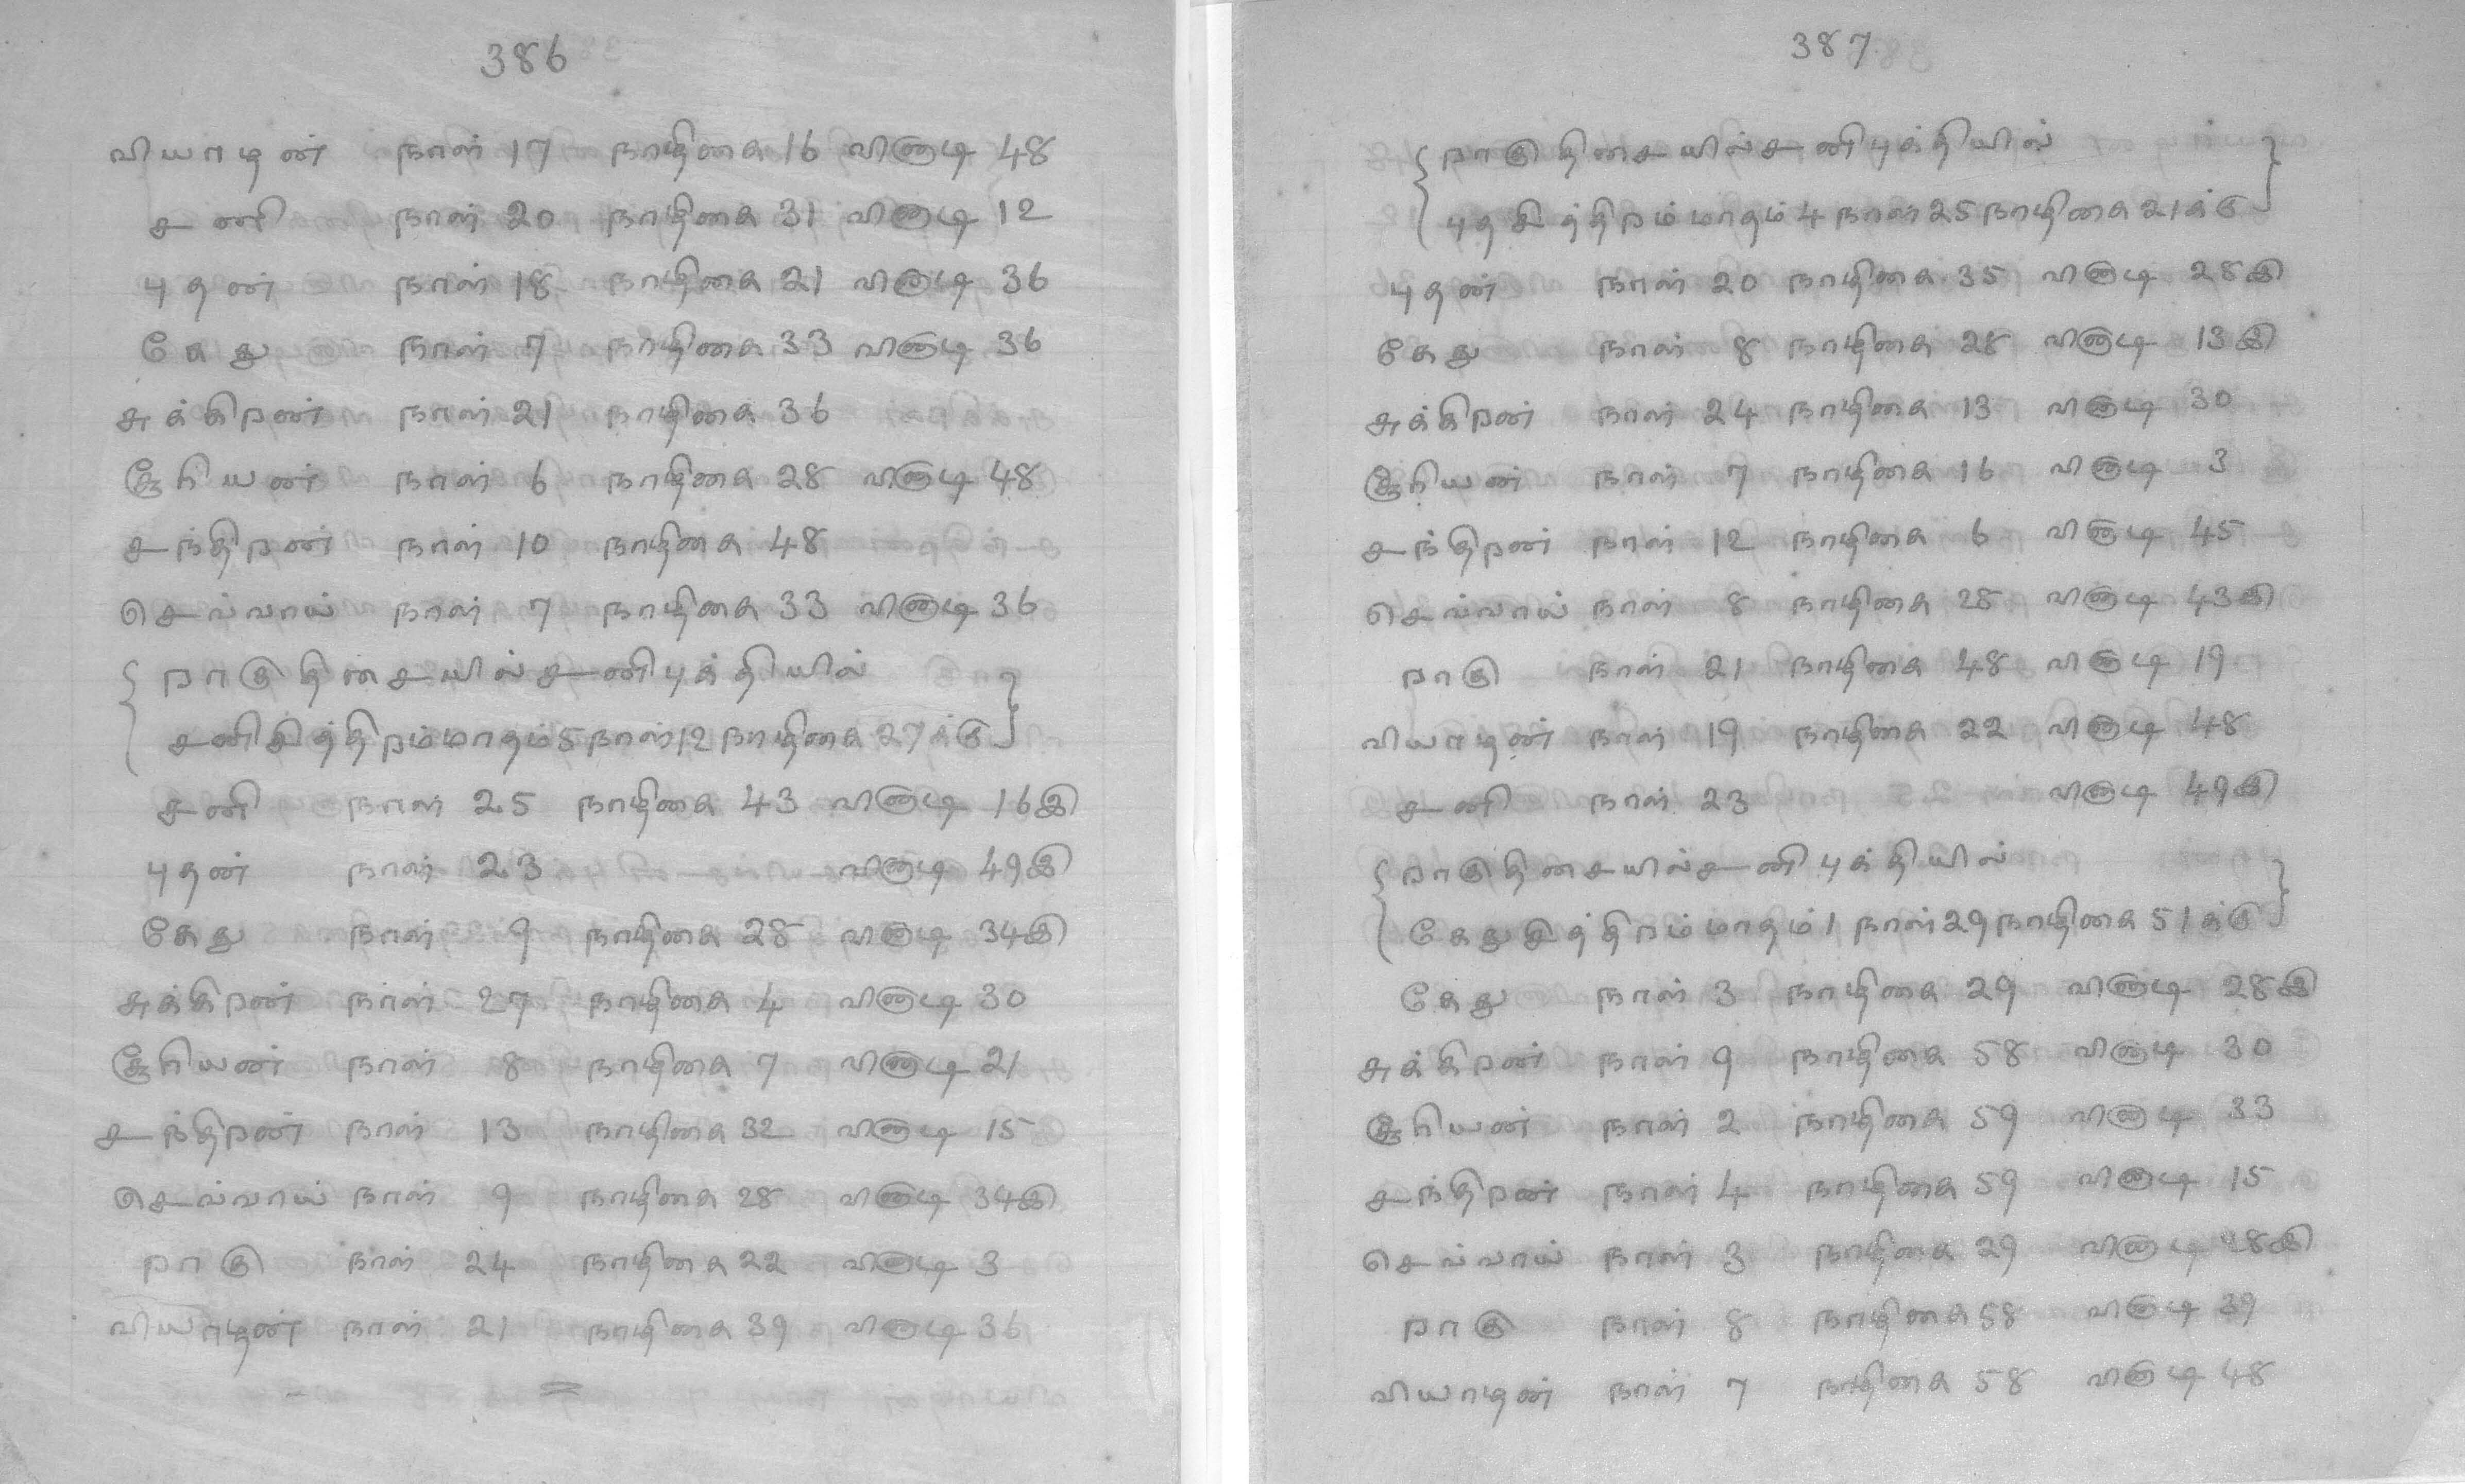 386
வியாழன் நாள் 17 நாழிகை 16 வினாடி 48
சனி நாள் 20 நாழிகை 31 வினாடி 12
புதன் நாள் 18 நாழிகை 21 வினாடி 36
கேது நாள் 7 நாழிகை 33 வினாடி 36
சுக்கிறன் நாள் 21 நாழிகை 36
சூரியன் நாள் 6 நாழிகை 28 வினாடி 48
சந்திறன் நாள் 10 நாழிகை 48
செவ்வாய் நாள் 7 நாழிகை 33 வினாடி 36
{ றாகு திசையில் சனி புக்தியில்
சனி சித்திறம் மாதம் 5 நாள் 12 நாழிகை 27க்கு }
சனி நாள் 25 நாழிகை 43 வினாடி 16இ
புதன் நாள் 23 வினாடி 49இ
கேது நாள் 9 நாழிகை 28 வினாடி 34இ
சுக்கிறன் நாள் 27 நாழிகை 4 வினாடி 30
சூரியன் நாள் 8 நாழிகை 7 வினாடி 21
சந்திறன் நாள் 13 நாழிகை 32 வினாடி 15
செவ்வாய் நாள் 9 நாழிகை 28 வினாடி 34இ
றாகு நாள் 24 நாழிகை 22 வினாடி 3
வியாழன் நாள் 21 நாழிகை 39 வினாடி 36
387
{ றாகு திசையில் சனி புக்தியில்
புத சித்திறம் மாதம் 4 நாள் 25 நாழிகை 21க்கு }
புதன் நாள் 20 நாழிகை 35 வினாடி 28இ
கேது நாள் 8 நாழிகை 28 வினாடி 13இ
சுக்கிறன் நாள் 24 நாழிகை 13 வினாடி 30
சூரியன் நாள் 7 நாழிகை 16 வினாடி 3
சந்திறன் நாள் 12 நாழிகை 6 வினாடி 45
செவ்வாய் நாள் 8 நாழிகை 28 வினாடி 43இ
றாகு நாள் 21 நாழிகை 48 வினாடி 19
வியாழன் நாள் 19 நாழிகை 22 வினாடி 48
சனி நாள் 23 வினாடி 49இ
{ றாகு திசையில் சனி புக்தியில்
கேது சித்திறம் மாதம் 1 நாள் 29 நாழிகை 51க்கு }
கேது நாள் 3 நாழிகை 29 வினாடி 28இ
சுக்கிறன் நாள் 9 நாழிகை 58 வினாடி 30
சூரியன் நாள் 2 நாழிகை 59 வினாடி 33
சந்திறன் நாள் 4 நாழிகை 59 வினாடி 15
செவ்வாய் நாள் 3 நாழிகை 29 வினாடி 28இ
றாகு நாள் 8 நாழிகை 58 வினாடி 39
வியாழன் நாள் 7 நாழிகை 58 வினாடி 48